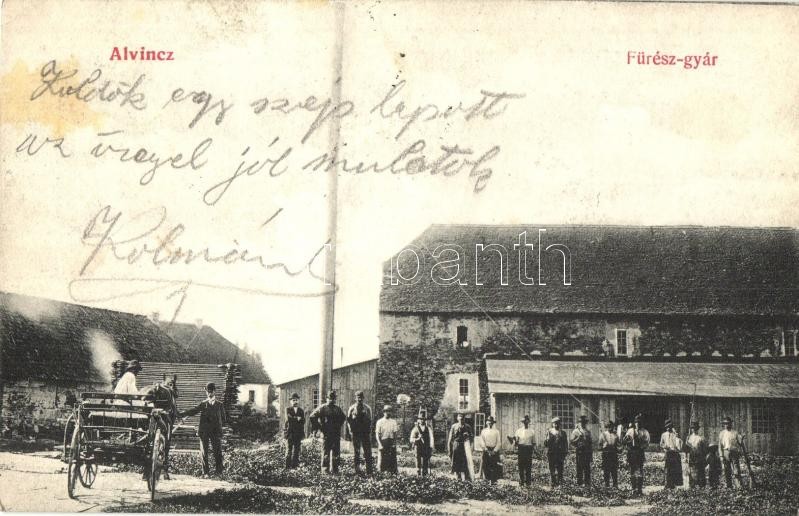 Alvincz
Fürész-gyár
Küldök egy szép lapott
az üregel jól mulatok
Kolmán
Darabanth